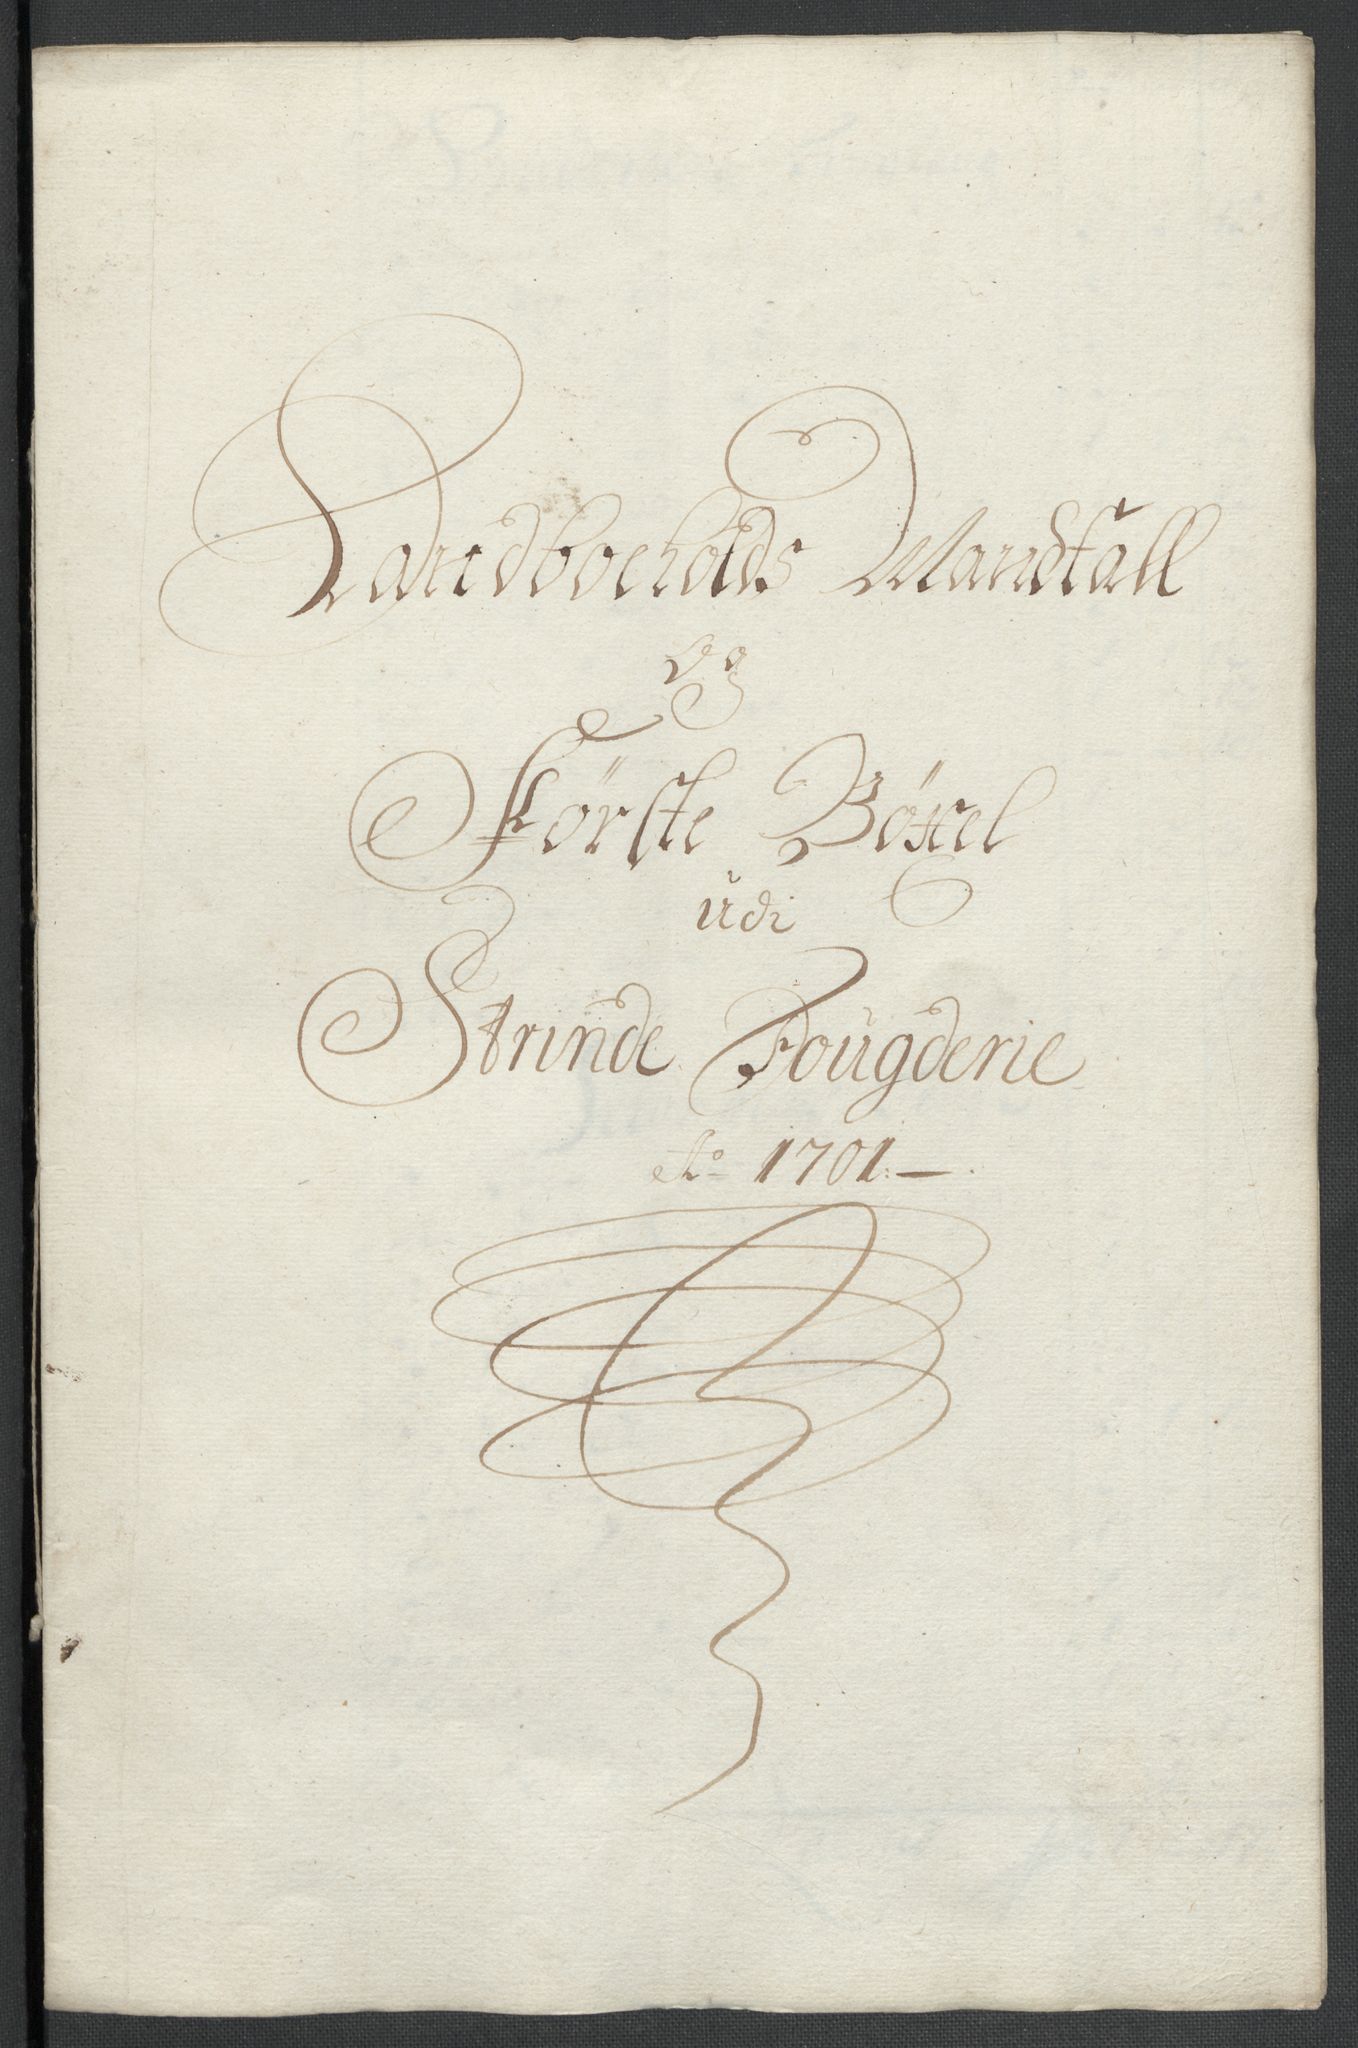 Landboeholds Mandtall
og
Förste Böxel
udi
Strinde Fougderie
Ao 1701.